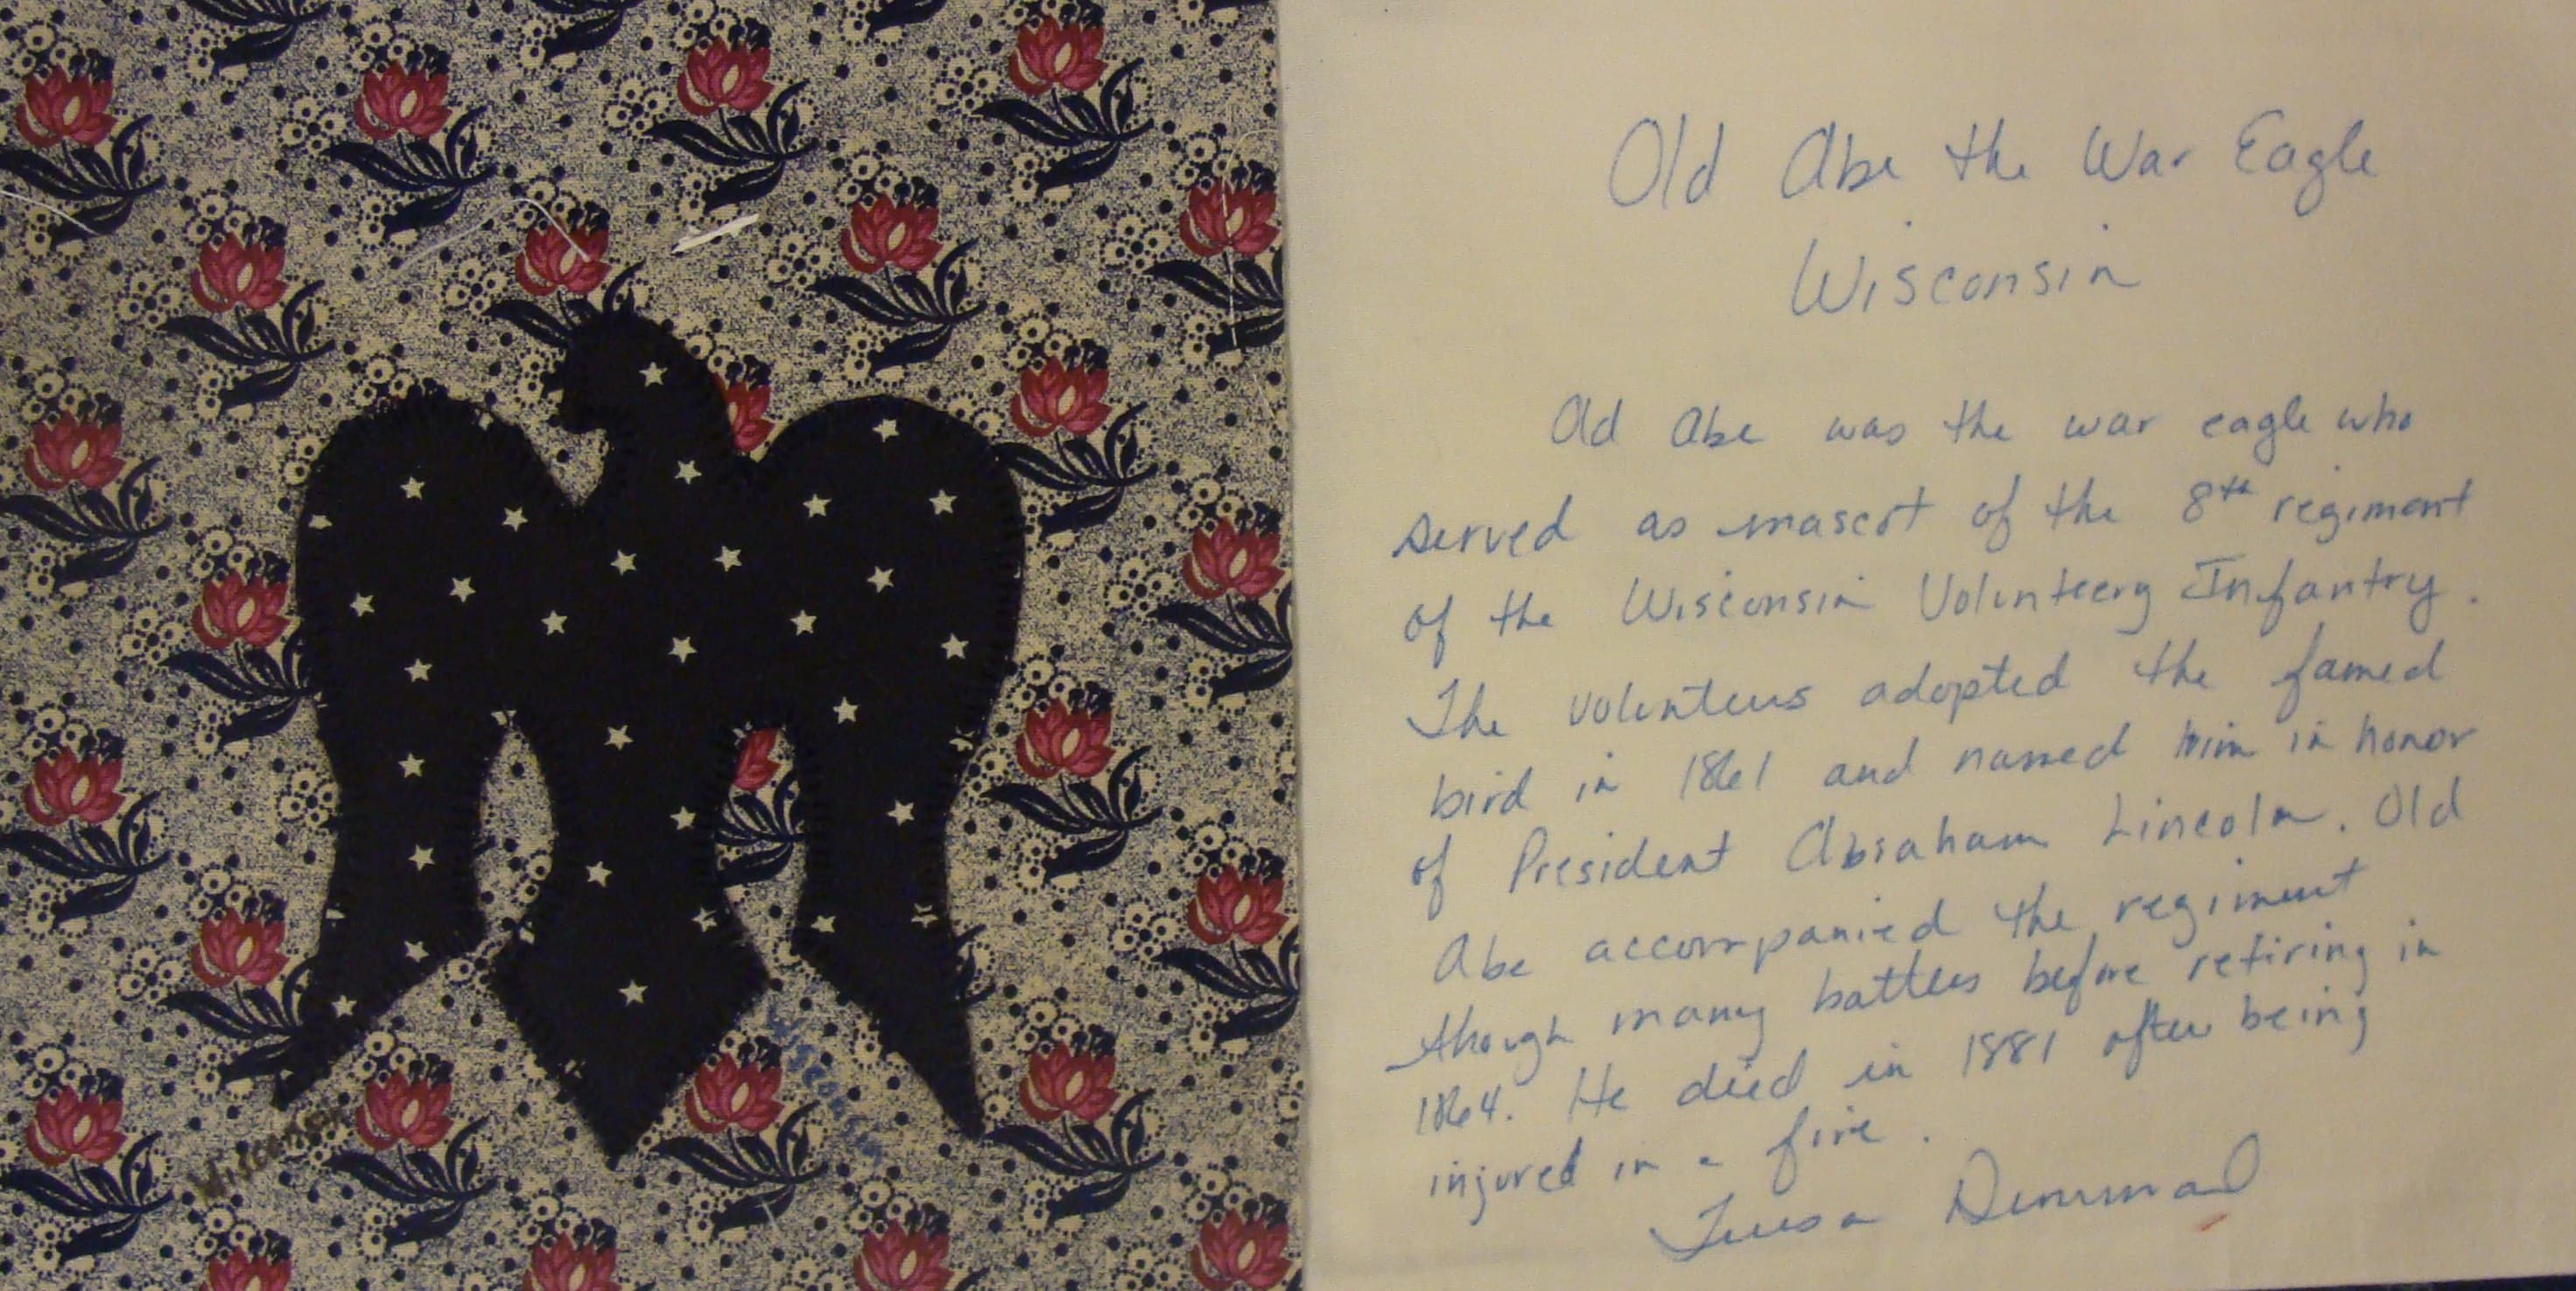 Old Abe the War Eagle
Wisconsin
Old Abe was the war eagle who
served as mascot of the 8th regiment
of the Wisconsin Volunteerg Infantry.
The volunteers adopted the famed
bird in 1861 and named him in honor
of President Abraham Lincoln. Old
Abe accompanied the regiment
though many battles before retiring in
1864. He died in 1881 after being
injured in a fire.
Teresa
Wisconsin
Wisconsin